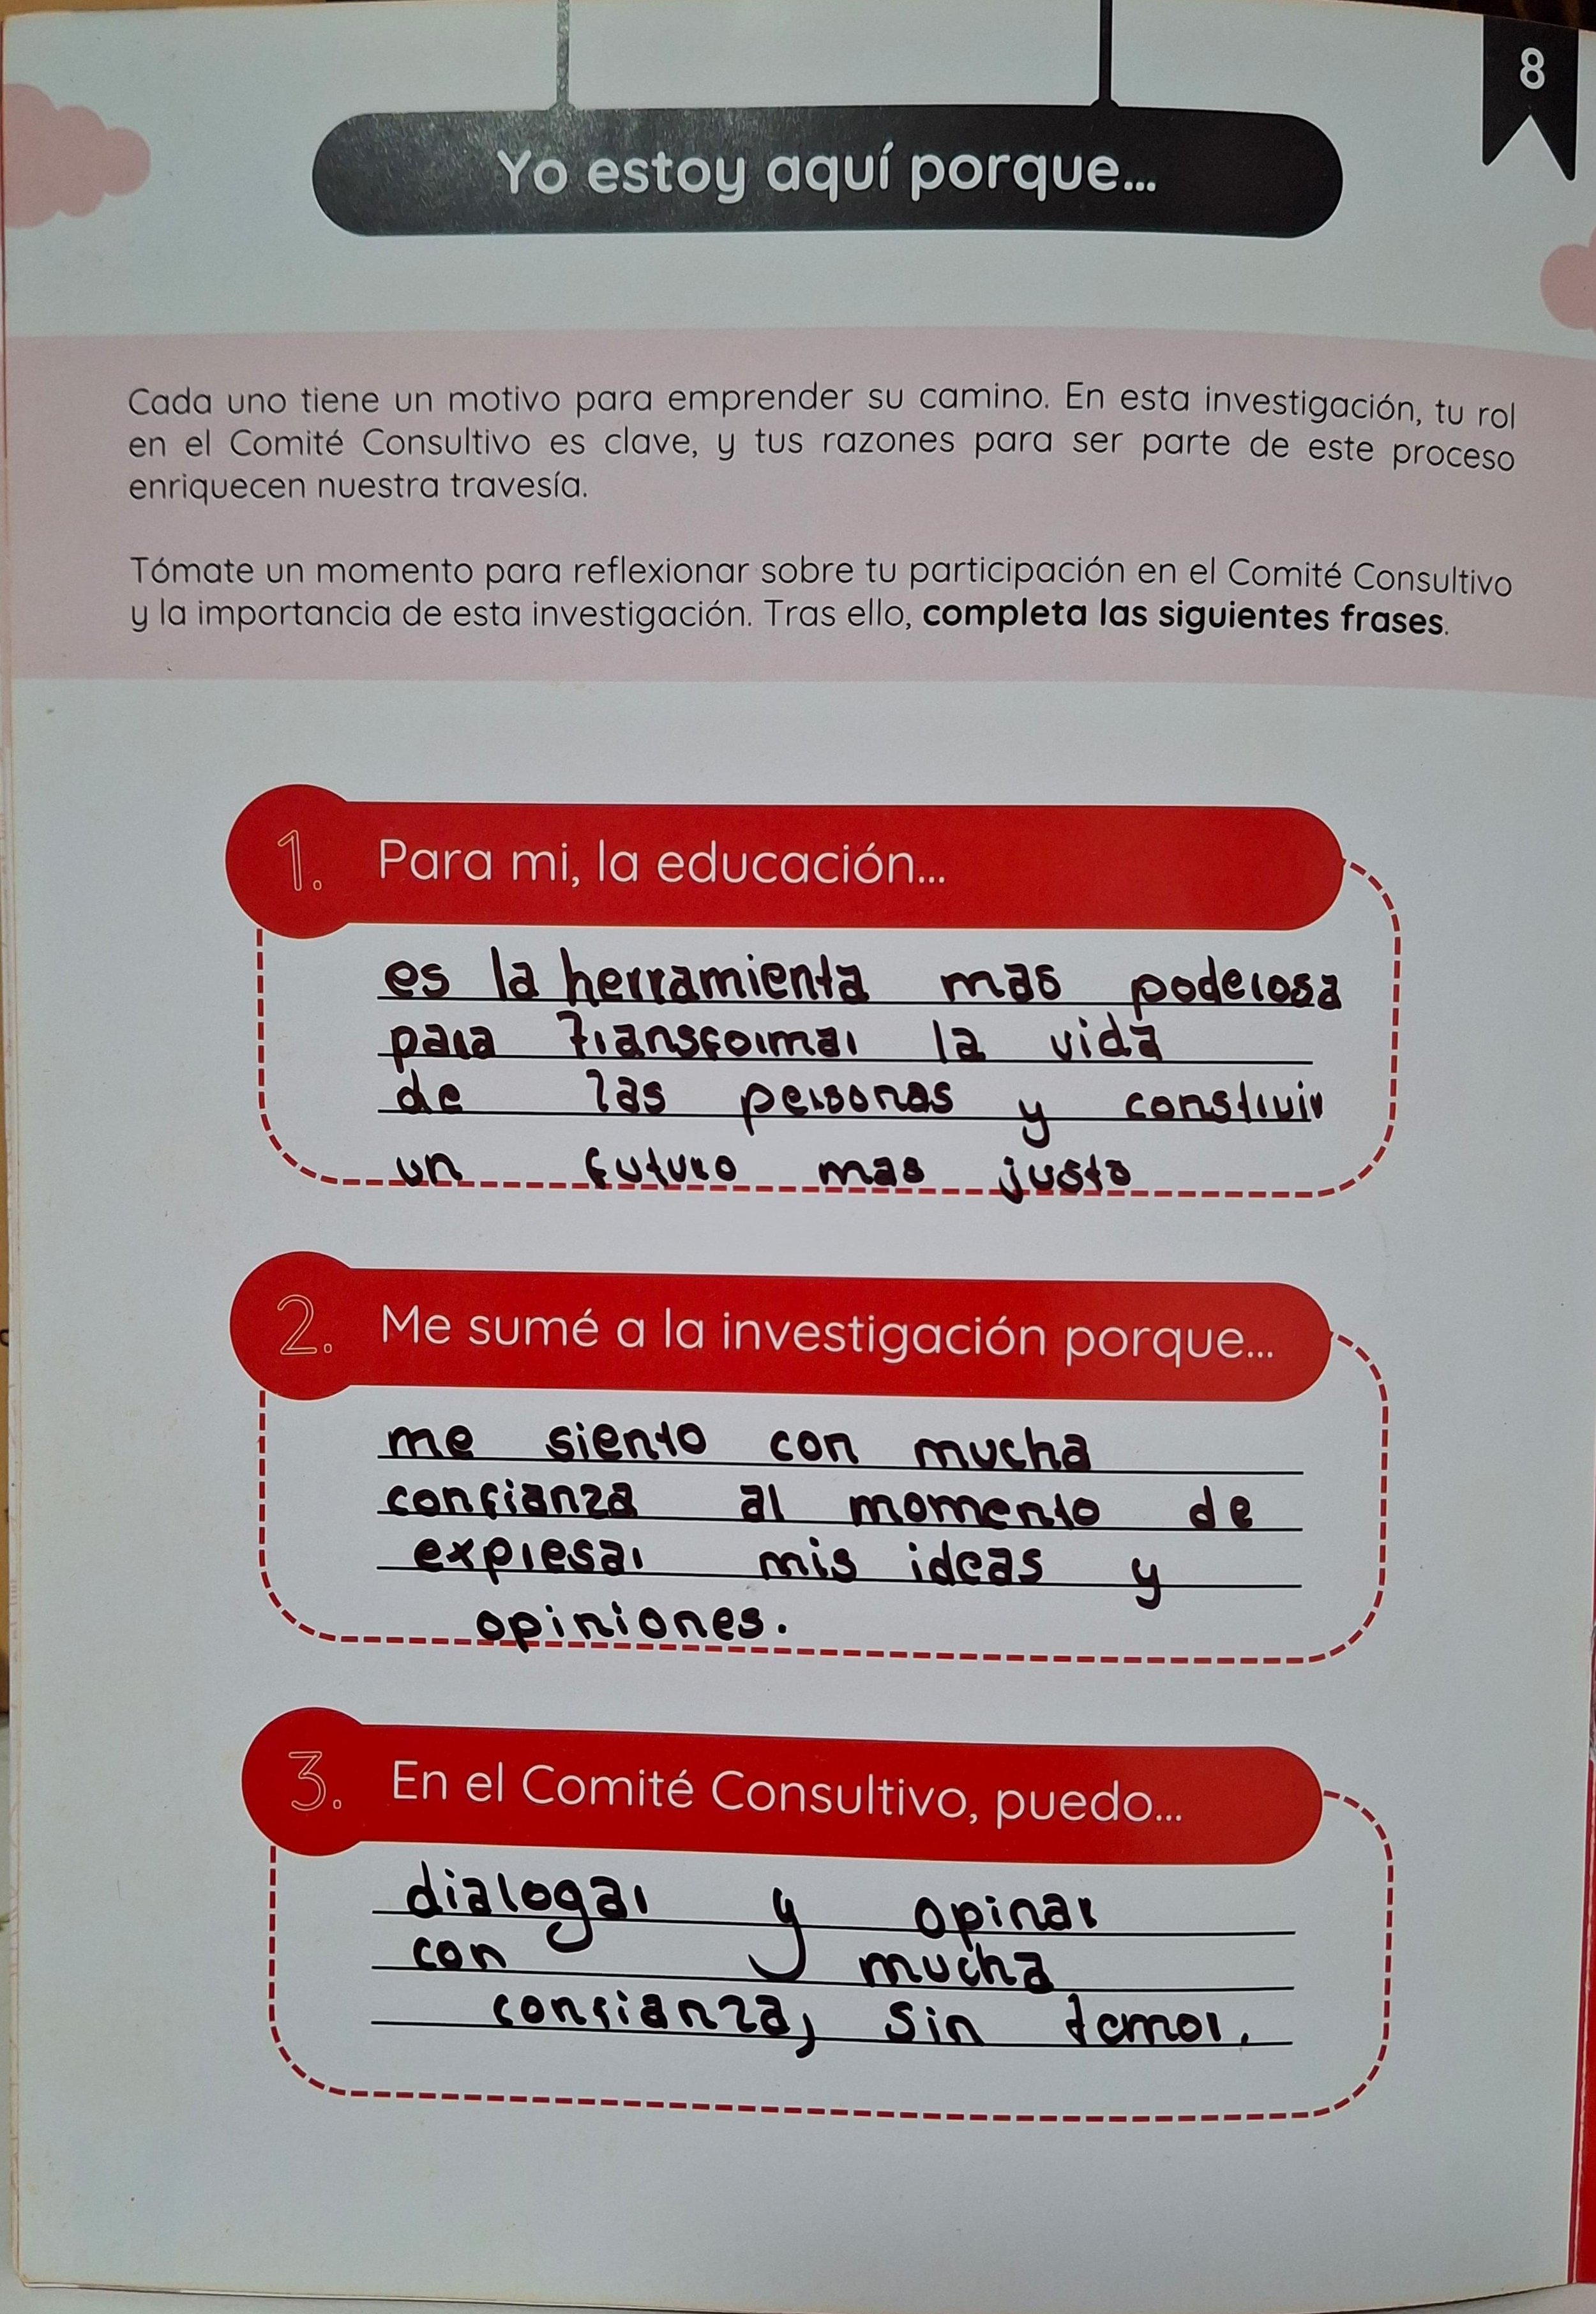 8
Yo estoy aquí porque...
Cada uno tiene un motivo para emprender su camino. En esta investigación, tu rol
en el Comité Consultivo es clave, y tus razones para ser parte de este proceso
enriquecen nuestra travesía.
Tómate un momento para reflexionar sobre tu participación en el Comité Consultivo
y la importancia de esta investigación. Tras ello, completa las siguientes frases.
1. Para mi, la educación...
es la herramienta mas poderosa
para transformar la vida
de las personas y construir
un futuro mas justo
2. Me sumé a la investigación porque...
me siento con mucha
confianza al momento de
expresar mis ideas y
opiniones.
3. En el Comité Consultivo, puedo...
dialogar y opinar
con mucha
confianza, sin temor.